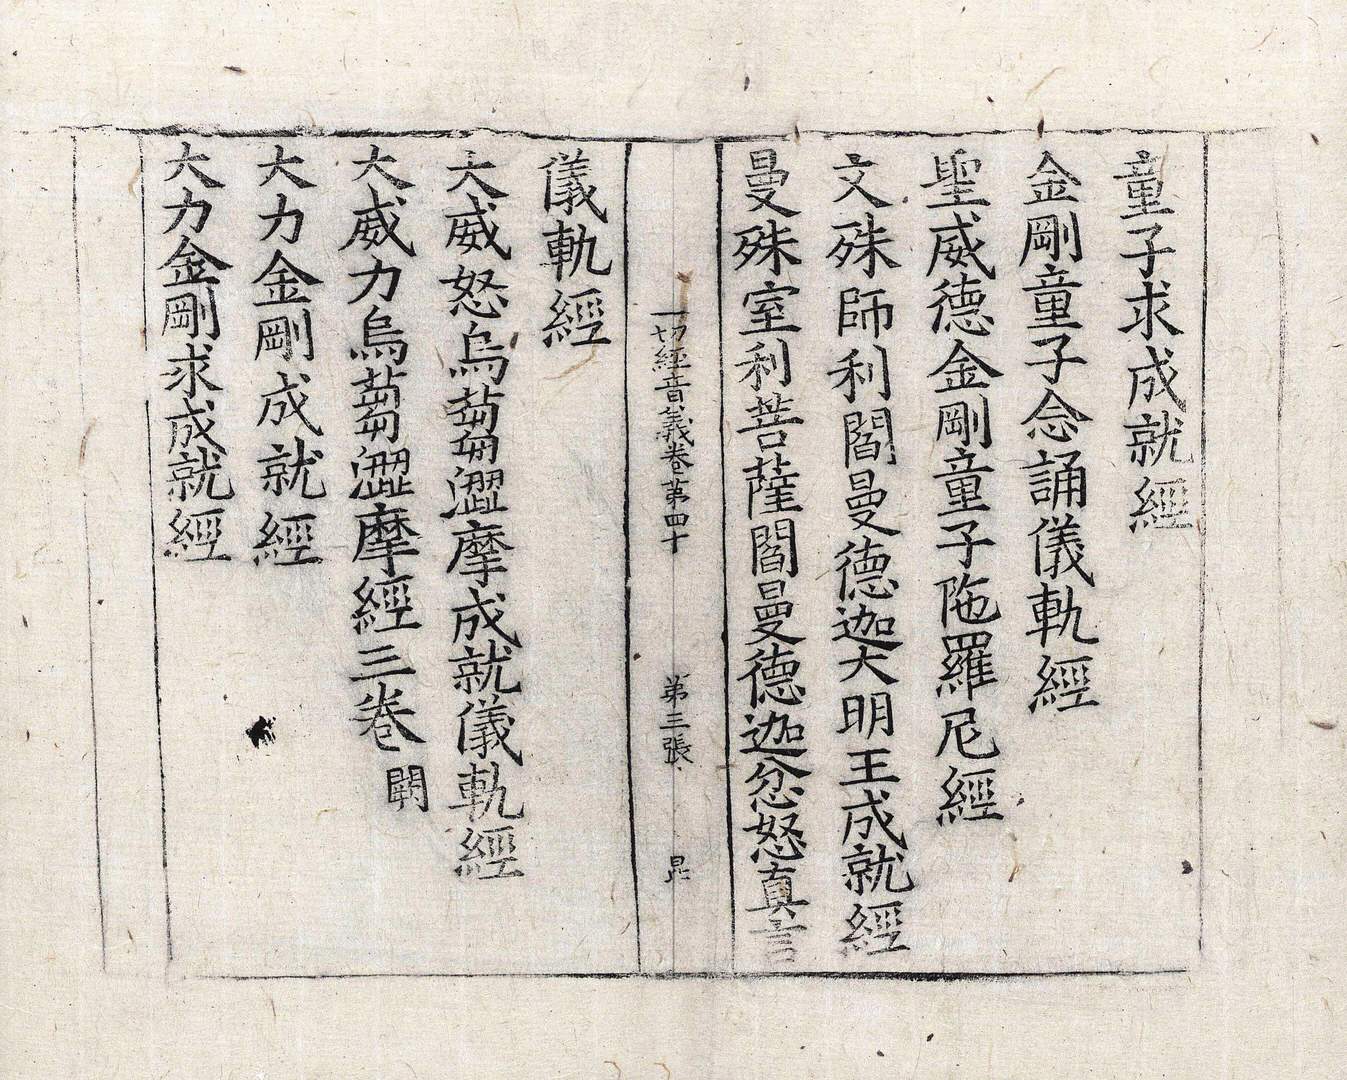 童子求成就經
金剛童子念誦儀軌經
聖威德金剛童子陁羅尼經
文殊師利閻曼德迦大明王成就經
曼殊室利菩薩閻曼德迦忿怒真言
一切經音義卷第四十 第三張 昆
儀軌經
大威怒烏蒭澀摩成就儀軌經
大威力烏蒭澀摩經三卷 闕
大力金剛成就經
大力金剛求成就經